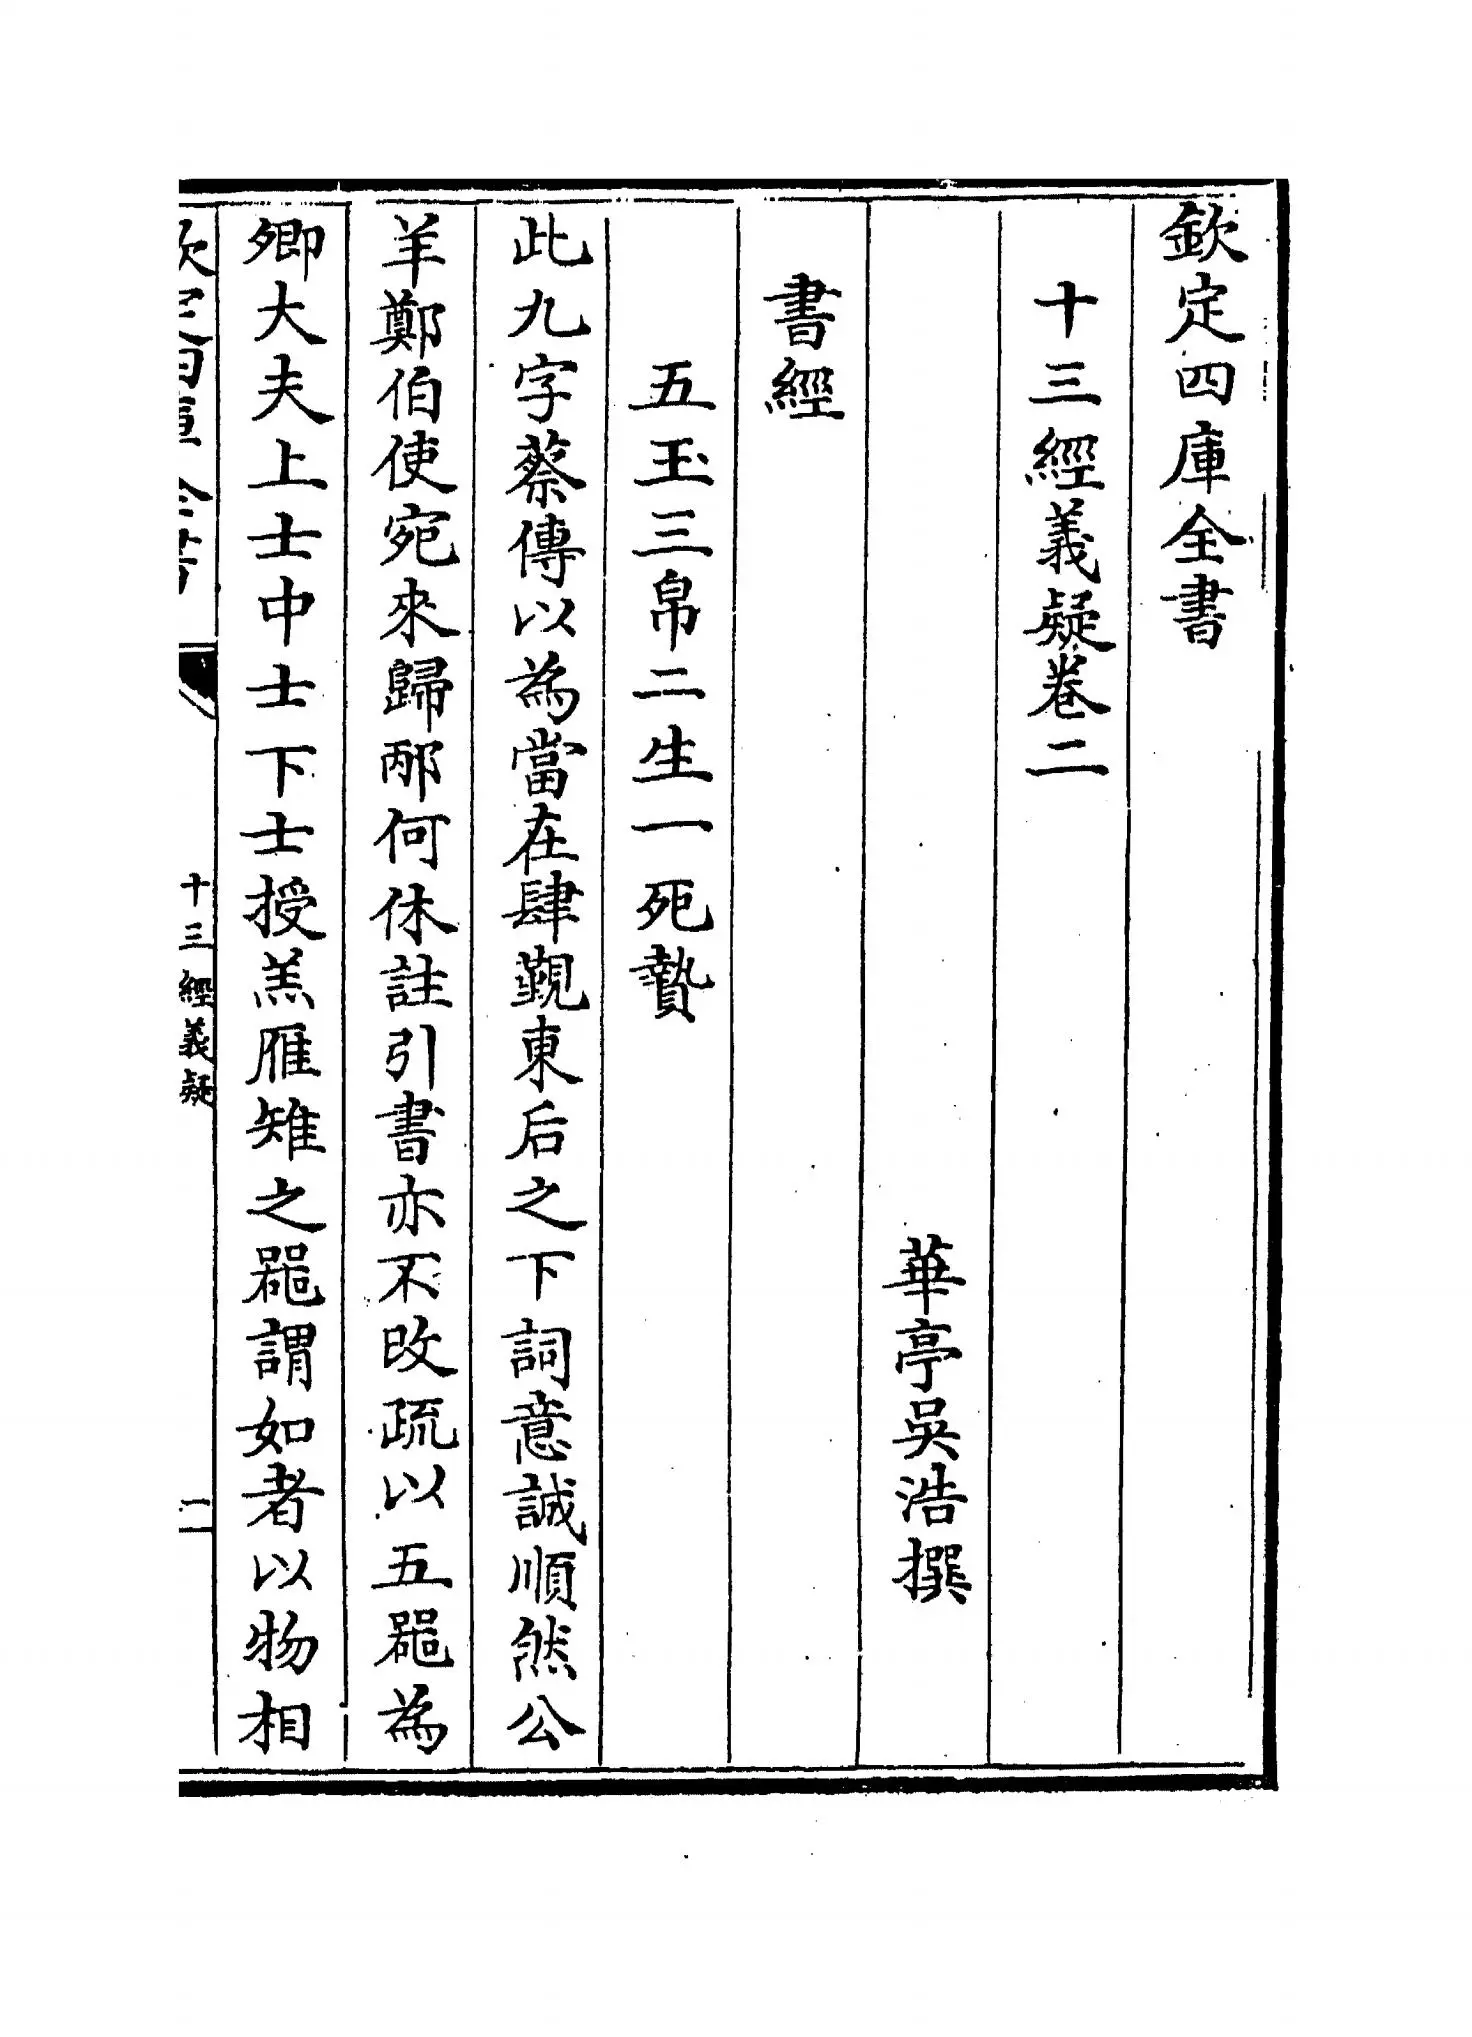 欽定四庫全書
十三經義疑卷二
華亭吳浩撰
書經
五玉三帛二生一死贄
此九字蔡傳以為當在肆覲東后之下詞意誠順然公
羊鄭伯使宛來歸邴何休註引書亦不改疏以五器為
卿大夫上士中士下士授羔雁雉之器謂如者以物相
十三經義疑